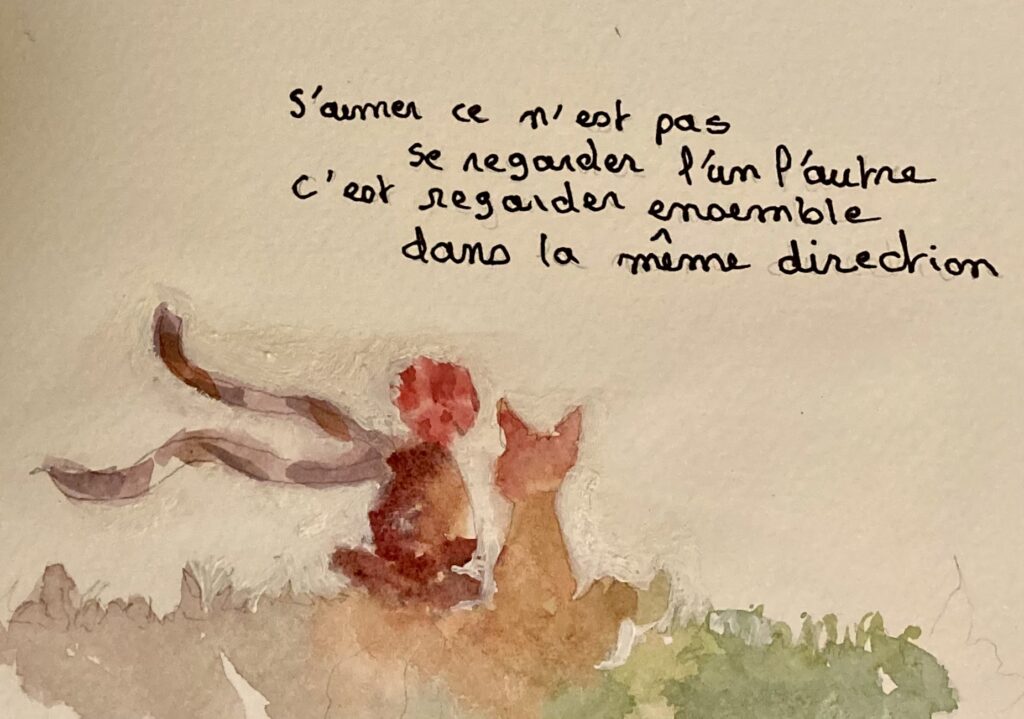 S'aimer ce n'est pas
se regarder l'un l'autre
c'est regarder ensemble
dans la même direction